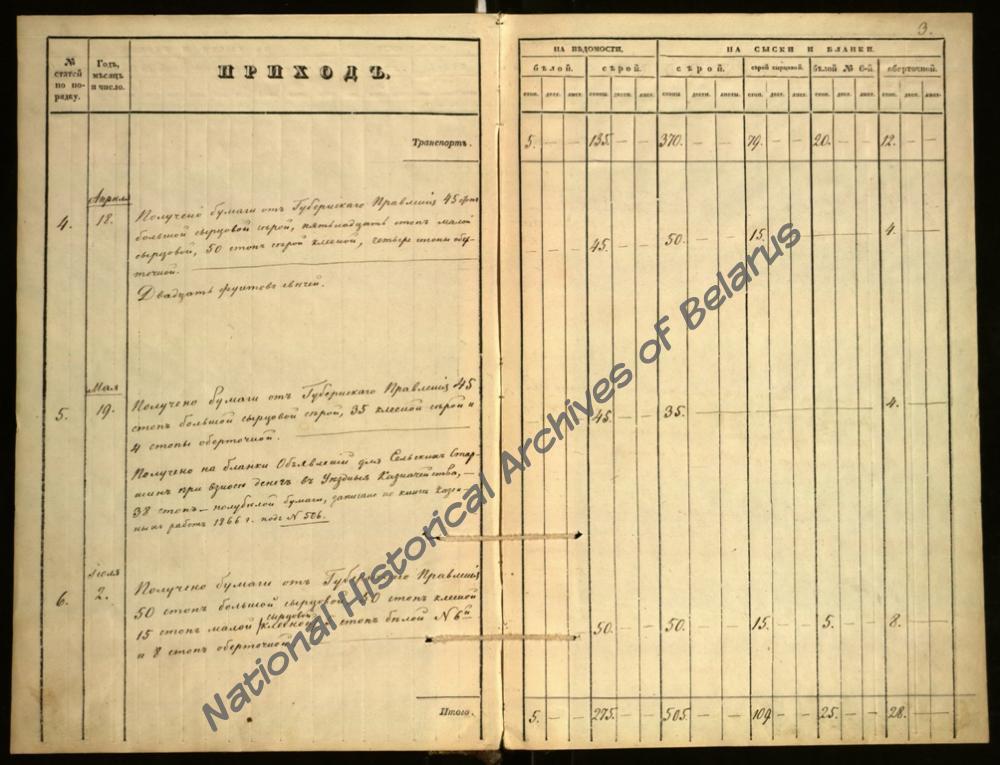 3.
№ статей по порядку.
Годъ, мѣсяцъ и число.
ПРИХОДЪ.
НА ВѢДОМОСТИ.
НА СЫСКИ И БЛАНКИ.
бѣлой. сѣрой. сѣрой. сѣрой сырцовой. бѣлой № 6-й. оберточной.
стоп. дест. лист. стопы. дести. листы. стопы. дести. листы. стоп. дест. лист. стоп. дест. лист. стоп. дес. лист.
Транспортъ. 5. — — 135. — — 370. — — 79. — — 20. — — 12. — —
Апрѣля
4. 18. Получено бумаги отъ Губернскаго Правленія 45 стопъ
большой сырцовой сѣрой, пятьнадцать стопъ малой
сырцовой, 50 стопъ сѣрой клееной, четыре стопы обер-
точной.
— 45. — — 50. — — 15. — — 4. — —
Двадцать фунтовъ свѣчей.
Мая
5. 19. Получено бумаги отъ Губернскаго Правленія 45
стопъ большой сырцовой сѣрой, 35 клееной сѣрой и
4 стопы оберточной.
45. — — 35. 4. —
Получено на бланки Объявленій для Сельскихъ Стар-
шинъ при взносѣ денегъ въ Уѣздныя Казначейства, —
38 стопъ — полубѣлой бумаги, записано по книгѣ казен-
ныхъ работъ 1866 г. подъ № 566.
Іюля
6. 2. Получено бумаги отъ Губернскаго Правленія
50 стопъ большой сырцовой, 50 стопъ клееной
сырцовой
15 стопъ малой клееной стопъ бѣлой N 6й
и 8 стопъ оберточной
50. — — 50. — — 15. — — 5. — — 8. — —
Итого. 5. — — 275. — — 505. — — 109 — — 25. — — 28. — —
National Historical Archives of Belarus